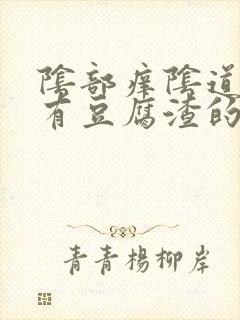 陰部痒陰道
有豆腐渣的
青青楊柳岸